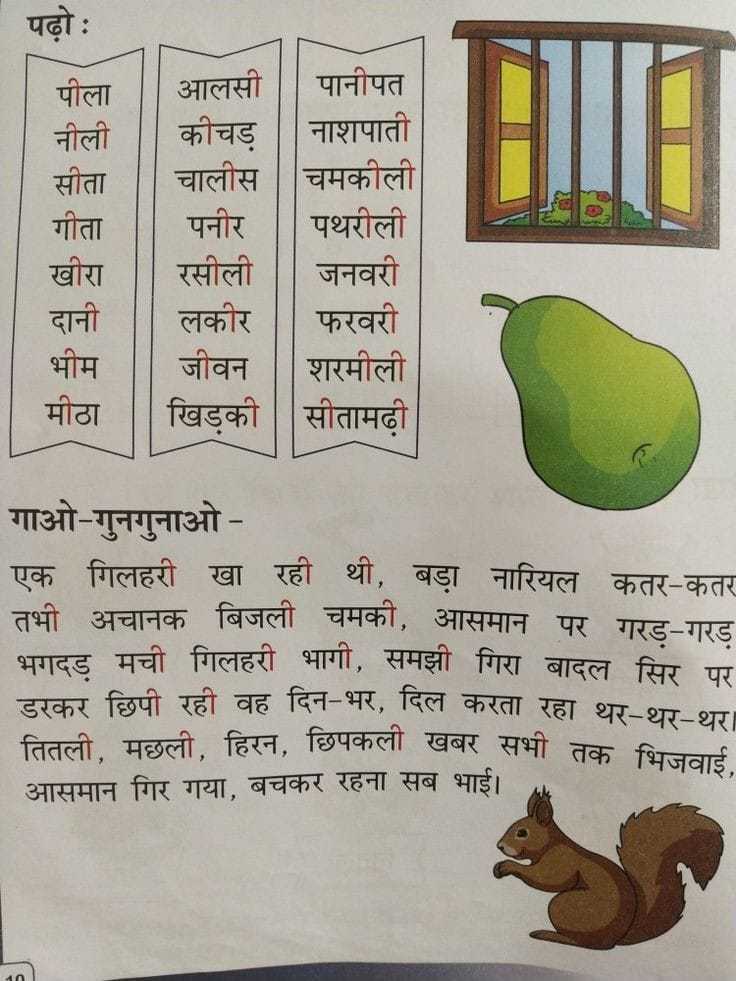 पढ़ो :
पीला
नीली
सीता
गीता
खीरा
दानी
भीम
मीठा
आलसी
कीचड़
चालीस
पनीर
रसीली
लकीर
जीवन
खिड़की
पानीपत
नाशपाती
चमकीली
पथरीली
जनवरी
फरवरी
शरमीली
सीतामढ़ी
गाओ-गुनगुनाओ -
एक गिलहरी खा रही थी, बड़ा नारियल कतर-कतर
तभी अचानक बिजली चमकी, आसमान पर गरड़-गरड़
भगदड़ मची गिलहरी भागी, समझी गिरा बादल सिर पर
डरकर छिपी रही वह दिन-भर, दिल करता रहा थर-थर-थर।
तितली, मछली, हिरन, छिपकली खबर सभी तक भिजवाई,
आसमान गिर गया, बचकर रहना सब भाई।